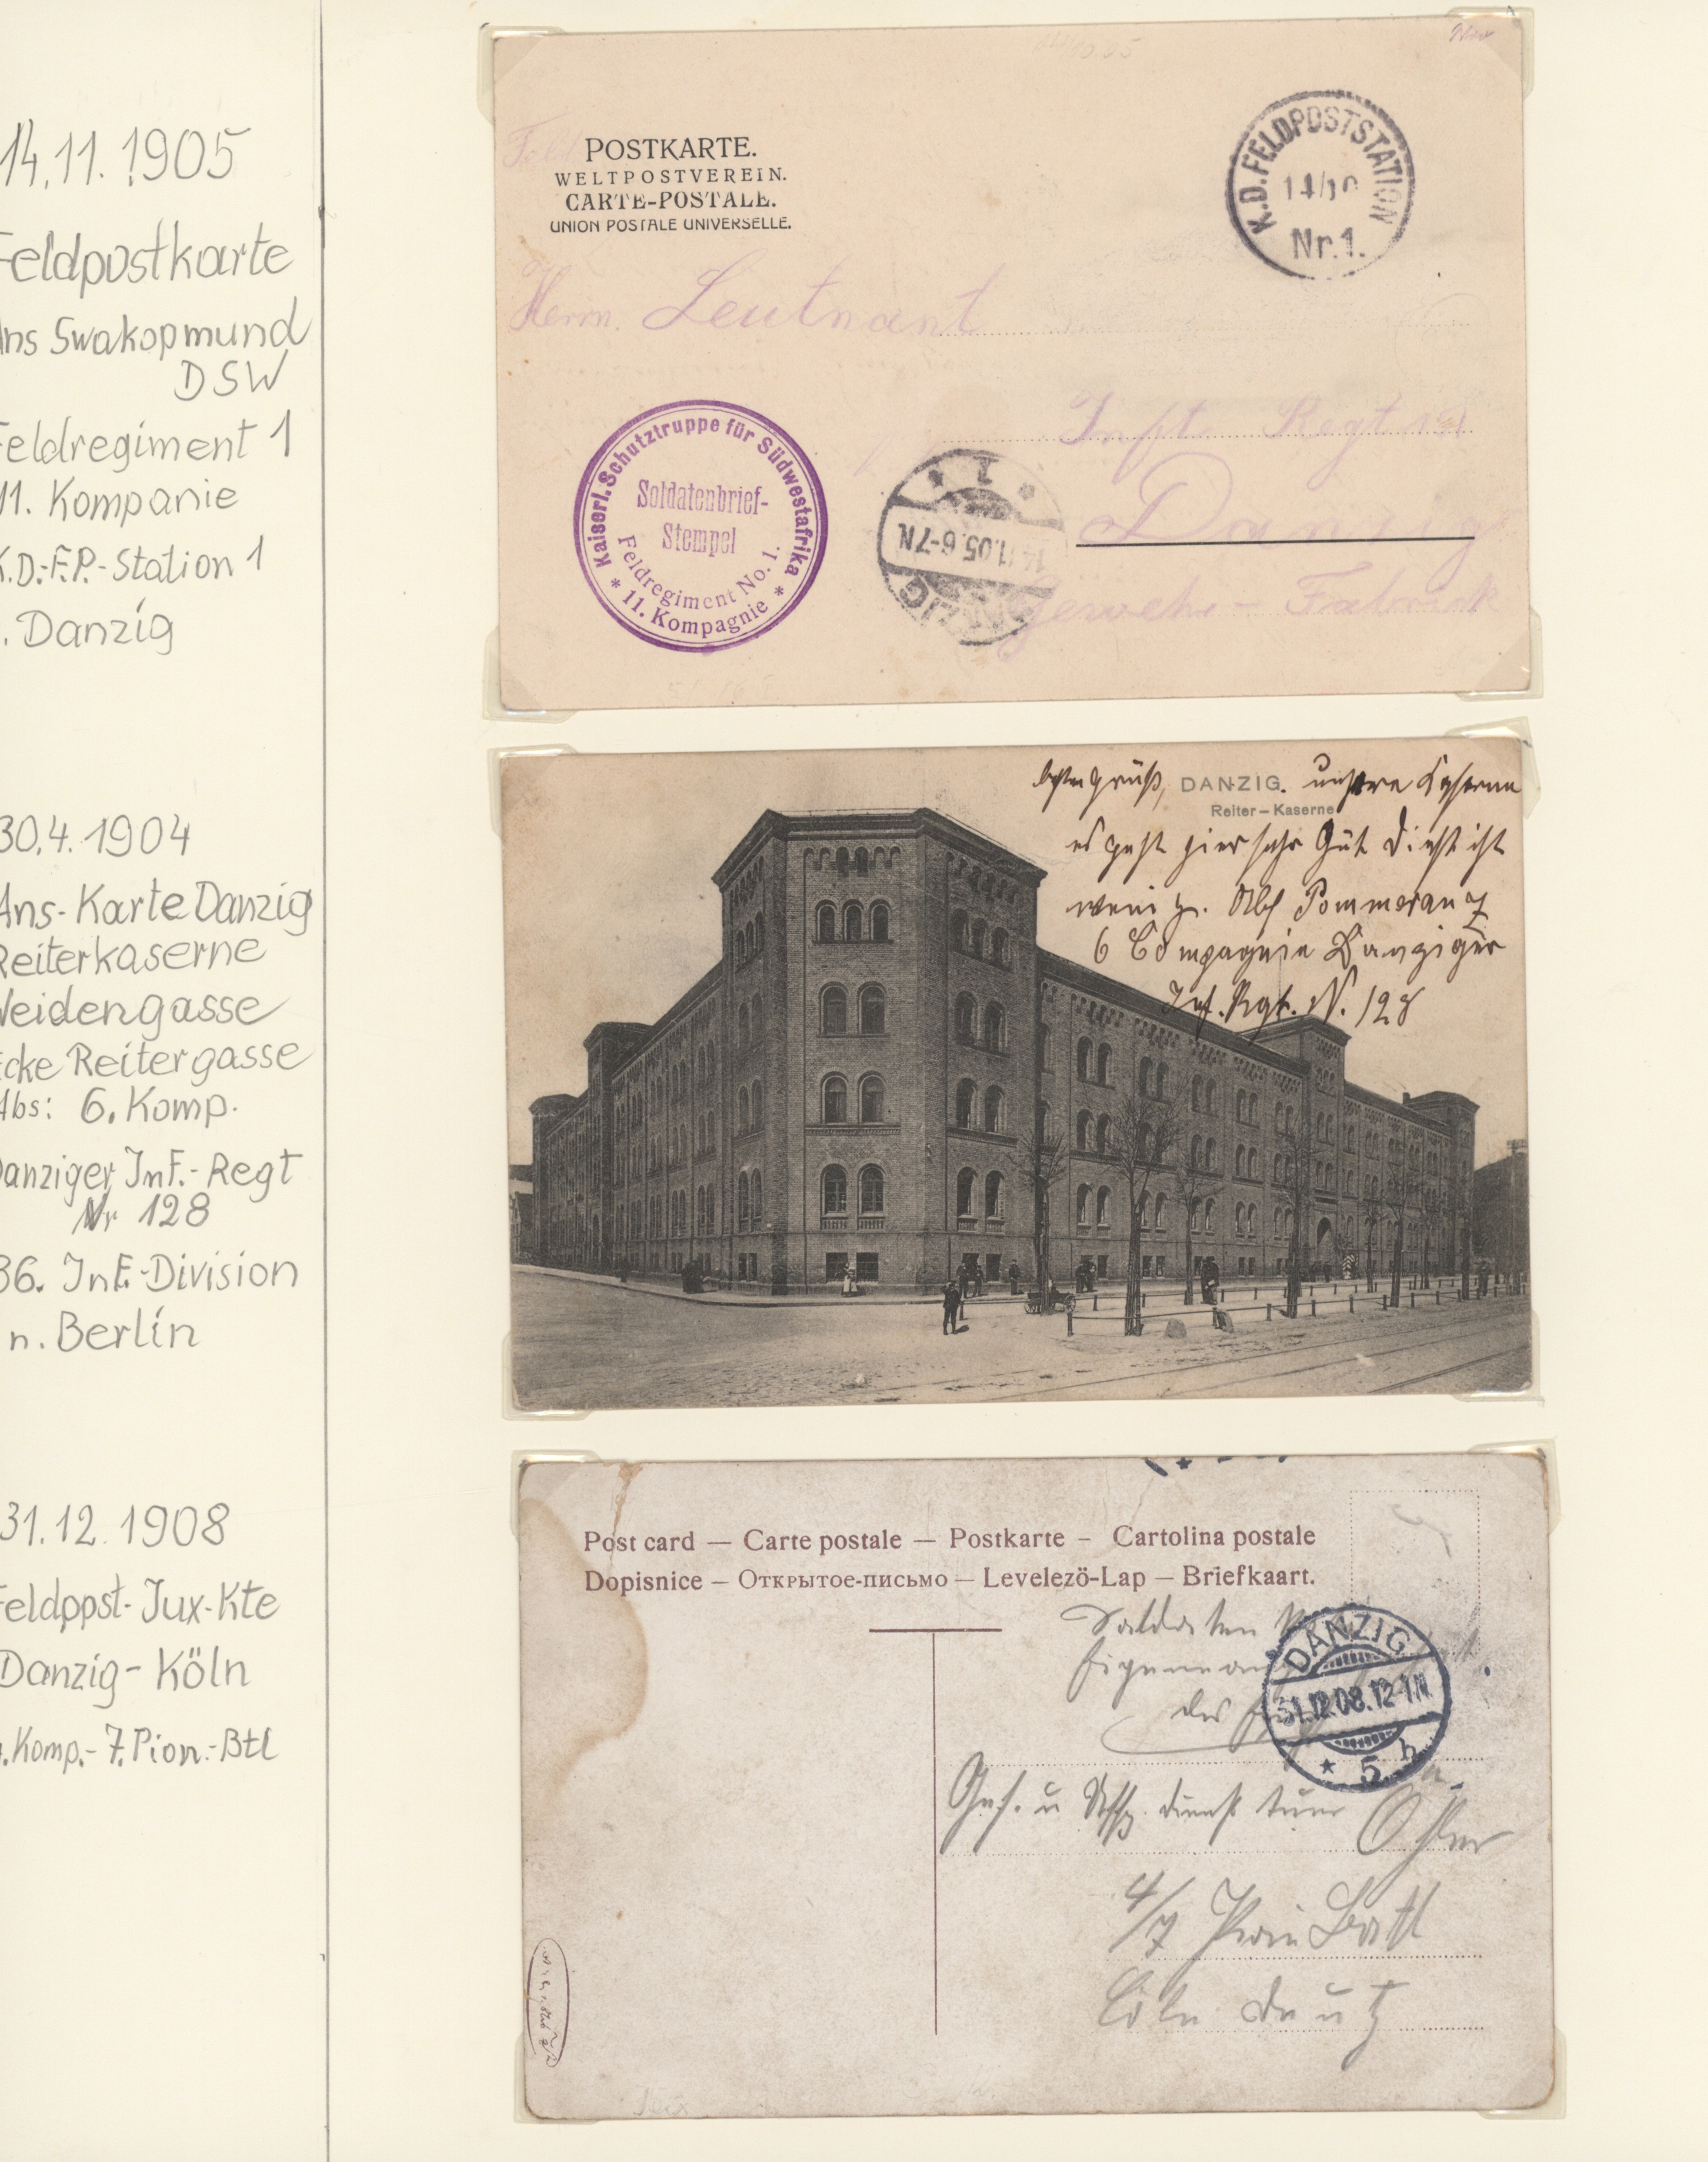 14.11.1905
Feldpostkarte
Ans Swakopmund
DSW
Feldregiment 1
11. Kompanie
K.D.-F.P.-Station 1
. Danzig
30.4.1904
Ans-Karte Danzig
Reiterkaserne
Weidengasse
Ecke Reitergasse
Abs: 6. Komp.
Danziger Inf.-Regt
Nr 128
36. Inf.-Division
n. Berlin
31.12.1908
Feldppst-Jux-Kte
Danzig-Köln
. Komp.-7. Pion.-Btl
POSTKARTE.
WELTPOSTVEREIN.
CARTE-POSTALE.
UNION POSTALE UNIVERSELLE.
K.D. FELDPOSTSTATION
14/10
Nr. 1.
Herrn Leutnant
Inft Regt
Danzig
Gewehr-Fabrick
Kaiserl. Schutztruppe für Südwestafrika
Soldatenbrief-
Stempel
Feldregiment No. 1.
* 11. Kompagnie *
DANZIG
14.11.05.6-7N.
* 1 *
DANZIG.
Reiter-Kaserne
gruß, unsere Kaserne
es geht hier sehr Gut Dienst ist
wenig. Abs Pommeranz
6 Compagnie Danziger
Inf. Rgt. N. 128
Post card — Carte postale — Postkarte – Cartolina postale
Dopisnice – Открытое-письмо – Levelezö-Lap – Briefkaart.
Soldaten
des
DANZIG
31.12.08.12-1N
* 5 h
Gef. u dienst tuer
4/7 Pion Batl
Cöln Deutz